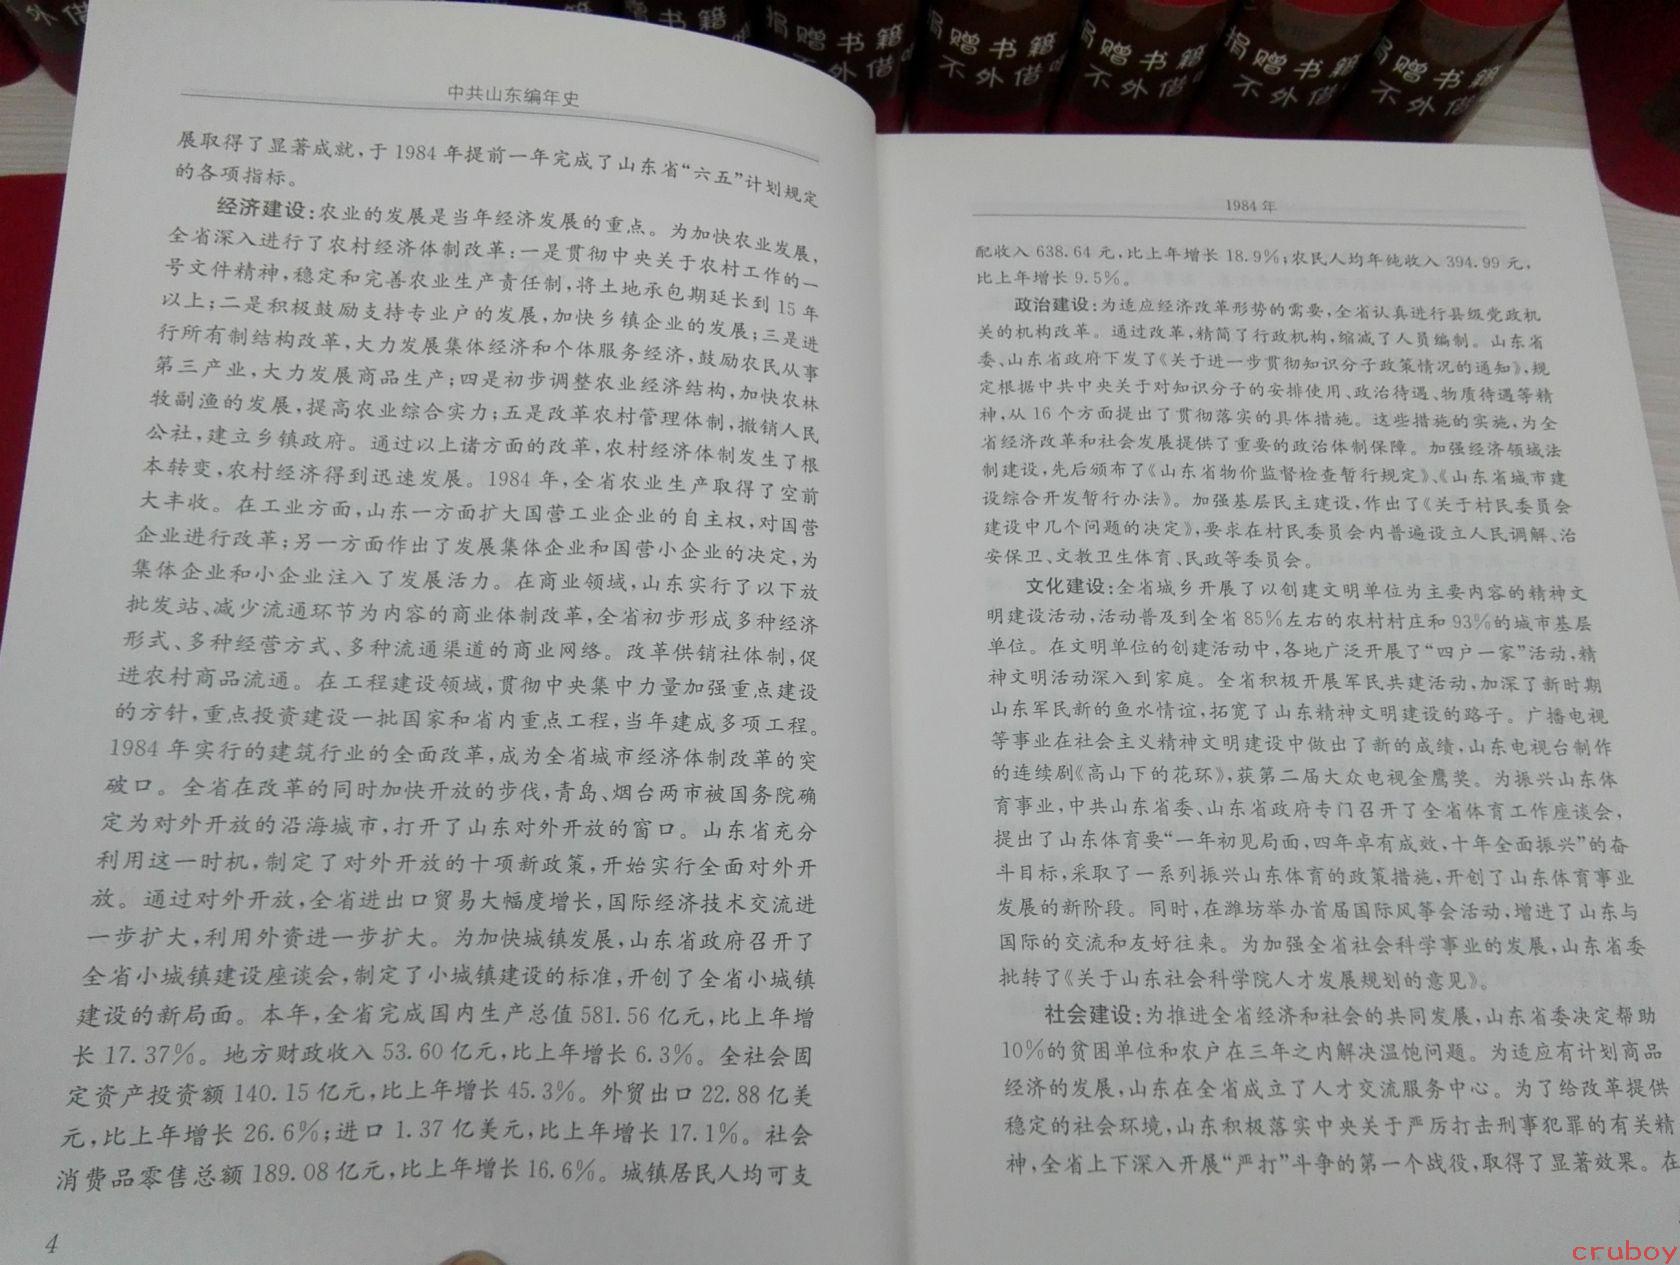 捐赠书籍
不外借
捐赠书籍
不外借
捐赠书籍
不外借
捐赠书籍
不外借
捐赠书籍
不外借
中共山东编年史
展取得了显著成就,于1984年提前一年完成了山东省“六五”计划规定
的各项指标。
经济建设:农业的发展是当年经济发展的重点。为加快农业发展,
全省深入进行了农村经济体制改革:一是贯彻中央关于农村工作的一
号文件精神,稳定和完善农业生产责任制,将土地承包期延长到15年
以上;二是积极鼓励支持专业户的发展,加快乡镇企业的发展;三是进
行所有制结构改革,大力发展集体经济和个体服务经济,鼓励农民从事
第三产业,大力发展商品生产;四是初步调整农业经济结构,加快农林
牧副渔的发展,提高农业综合实力;五是改革农村管理体制,撤销人民
公社,建立乡镇政府。通过以上诸方面的改革,农村经济体制发生了根
本转变,农村经济得到迅速发展。1984年,全省农业生产取得了空前
大丰收。在工业方面,山东一方面扩大国营工业企业的自主权,对国营
企业进行改革;另一方面作出了发展集体企业和国营小企业的决定,为
集体企业和小企业注入了发展活力。在商业领域,山东实行了以下放
批发站、减少流通环节为内容的商业体制改革,全省初步形成多种经济
形式、多种经营方式、多种流通渠道的商业网络。改革供销社体制,促
进农村商品流通。在工程建设领域,贯彻中央集中力量加强重点建设
的方针,重点投资建设一批国家和省内重点工程,当年建成多项工程。
1984年实行的建筑行业的全面改革,成为全省城市经济体制改革的突
破口。全省在改革的同时加快开放的步伐,青岛、烟台两市被国务院确
定为对外开放的沿海城市,打开了山东对外开放的窗口。山东省充分
利用这一时机,制定了对外开放的十项新政策,开始实行全面对外开
放。通过对外开放,全省进出口贸易大幅度增长,国际经济技术交流进
一步扩大,利用外资进一步扩大。为加快城镇发展,山东省政府召开了
全省小城镇建设座谈会,制定了小城镇建设的标准,开创了全省小城镇
建设的新局面。本年,全省完成国内生产总值581.56亿元,比上年增
长17.37%。地方财政收入53.60亿元,比上年增长6.3%。全社会固
定资产投资额140.15亿元,比上年增长45.3%。外贸出口22.88亿美
元,比上年增长26.6%;进口1.37亿美元,比上年增长17.1%。社会
消费品零售总额189.08亿元,比上年增长16.6%。城镇居民人均可支
4
1984年
配收入638.64元,比上年增长18.9%;农民人均年纯收入394.99元,
比上年增长9.5%。
政治建设:为适应经济改革形势的需要,全省认真进行县级党政机
关的机构改革。通过改革,精简了行政机构,缩减了人员编制。山东省
委、山东省政府下发了《关于进一步贯彻知识分子政策情况的通知》,规
定根据中共中央关于对知识分子的安排使用、政治待遇、物质待遇等精
神,从16个方面提出了贯彻落实的具体措施。这些措施的实施,为全
省经济改革和社会发展提供了重要的政治体制保障。加强经济领域法
制建设,先后颁布了《山东省物价监督检查暂行规定》、《山东省城市建
设综合开发暂行办法》。加强基层民主建设,作出了《关于村民委员会
建设中几个问题的决定》,要求在村民委员会内普遍设立人民调解、治
安保卫、文教卫生体育、民政等委员会。
文化建设:全省城乡开展了以创建文明单位为主要内容的精神文
明建设活动,活动普及到全省85%左右的农村村庄和93%的城市基层
单位。在文明单位的创建活动中,各地广泛开展了“四户一家”活动,精
神文明活动深入到家庭。全省积极开展军民共建活动,加深了新时期
山东军民新的鱼水情谊,拓宽了山东精神文明建设的路子。广播电视
等事业在社会主义精神文明建设中做出了新的成绩,山东电视台制作
的连续剧《高山下的花环》,获第二届大众电视金鹰奖。为振兴山东体
育事业,中共山东省委、山东省政府专门召开了全省体育工作座谈会,
提出了山东体育要“一年初见局面,四年卓有成效,十年全面振兴”的奋
斗目标,采取了一系列振兴山东体育的政策措施,开创了山东体育事业
发展的新阶段。同时,在潍坊举办首届国际风筝会活动,增进了山东与
国际的交流和友好往来。为加强全省社会科学事业的发展,山东省委
批转了《关于山东社会科学院人才发展规划的意见》。
社会建设:为推进全省经济和社会的共同发展,山东省委决定帮助
10%的贫困单位和农户在三年之内解决温饱问题。为适应有计划商品
经济的发展,山东在全省成立了人才交流服务中心。为了给改革提供
稳定的社会环境,山东积极落实中央关于严厉打击刑事犯罪的有关精
神,全省上下深入开展“严打”斗争的第一个战役,取得了显著效果。在
cruboy